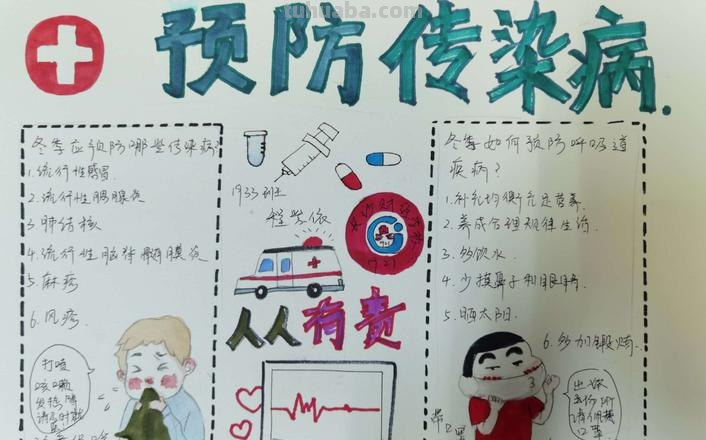 tuhuaba.com
预防传染病.
冬季应预防哪些传染病?
1.流行性感冒
2.流行性腮腺炎
3.肺结核
4.流行性脑脊髓膜炎
5.麻疹
6.风疹.
打喷
咳嗽
1933班
人人有责
冬季如何预防呼吸道
疾病?
1.补充均衡充足营养.
2.养成合理规律生活.
3.多饮水.
4.少摸鼻子和眼睛.
5.晒太阳.
6.多加锻炼..